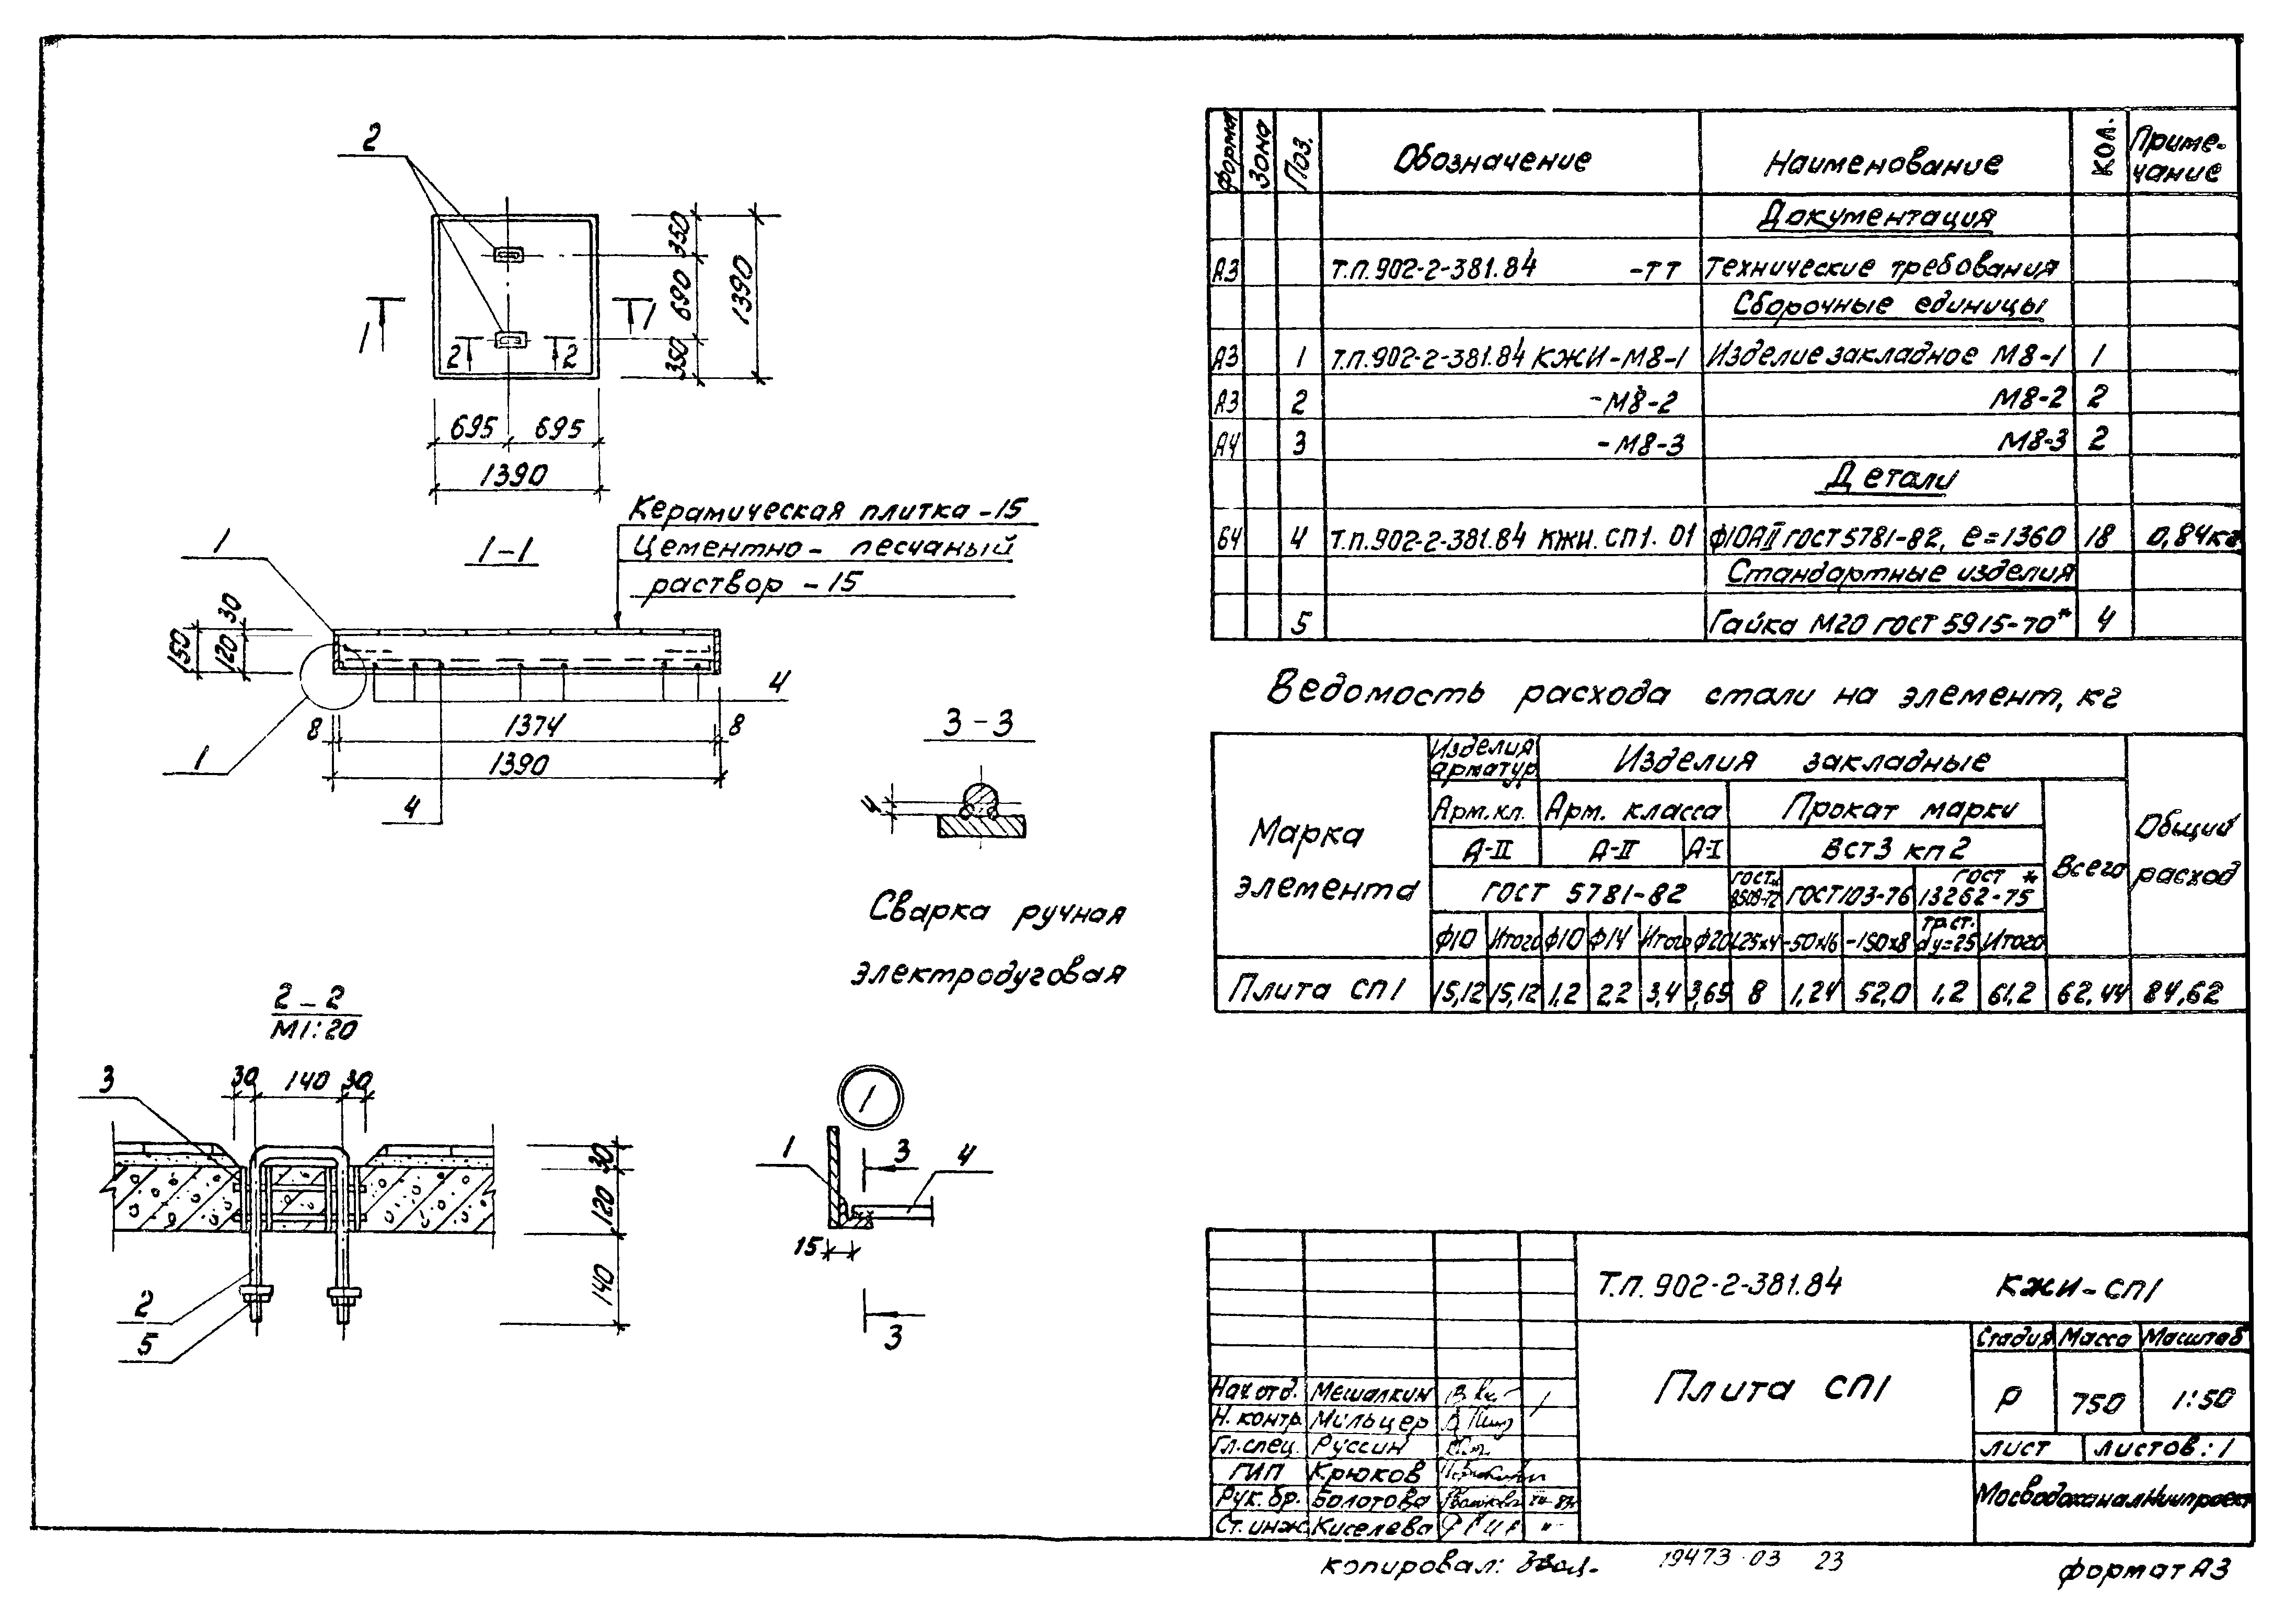 2
350
690
350
1390
1
1
2
2
695
695
1390
Керамическая плитка -15
Цементно- песчаный
раствор -15
1
1-1
30
120
150
4
8
1374
8
1390
1
4
3-3
4
Сварка ручная
электродуговая
2-2
М1:20
3
30
140
30
30
120
140
2
5
1
1
3
4
15
3
Формат
Зона
Поз.
Обозначение
Наименование
Кол.
Приме-
чание
Документация
А3 Т.П.902-2-381.84 -ТТ Технические требования
Сборочные единицы
А3 1 Т.П.902-2-381.84 КЖИ-М8-1 Изделие закладное М8-1 1
А3 2 -М8-2 М8-2 2
А4 3 -М8-3 М8-3 2
Детали
БЧ 4 Т.П.902-2-381.84 КЖИ.СП1.01 Ф10АII ГОСТ 5781-82, е=1360 18 0,84кг
Стандартные изделия
5 Гайка М20 ГОСТ 5915-70* 4
Ведомость расхода стали на элемент, кг
Марка
элемента
Изделия
арматур
Изделия закладные
Арм.кл.
Арм. класса
Прокат марки
Всего
Общий
расход
А-II
А-II
А-I
ВСт3 кп2
ГОСТ 5781-82
ГОСТ
8509-72
ГОСТ103-76
ГОСТ *
13262-75
Ф10
Итого
Ф10
Ф14
Итого
Ф20
L25х4
-50х16
-150х8
тр.ст.
dу=25
Итого
Плита СП1 15,12 15,12 1,2 2,2 3,4 3,65 8 1,24 52,0 1,2 61,2 62,44 84,62
Т.П. 902-2-381.84 КЖИ-СП1
Плита СП1
Стадия Масса Масштаб
Р 750 1:50
лист листов: 1
МосводоканалНиипроект
Нач.отд. Мешалкин
Н.контр. Мильцер
Гл.спец. Руссин
ГИП Крюков
Рук.бр. Болотова
Ст.инж. Киселева
копировал:
19473-03 23
формат А3